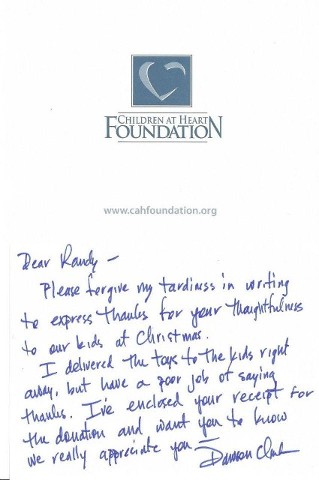 CHILDREN AT HEART
FOUNDATION
www.cahfoundation.org
Dear Randy —
Please forgive my tardiness in writing
to express thanks for your thoughtfulness
to our kids at Christmas.
I delivered the toys to the kids right
away, but have a poor job of saying
thanks. I've enclosed your receipt for
the donation and want you to know
we really appreciate you —